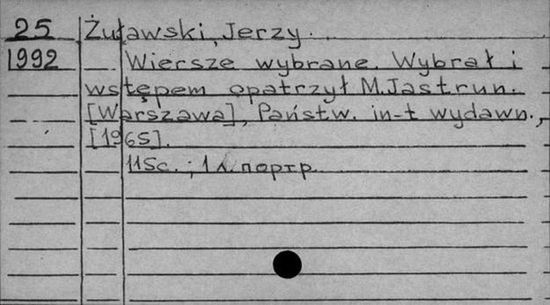 25 Żuławski, Jerzy.
1992 Wiersze wybrane. Wybrał i
wstępem opatrzył M. Jastrun.
[Warszawa], Państw. in-t wydawn.,
[1965].
115с.; 1 л. портр.